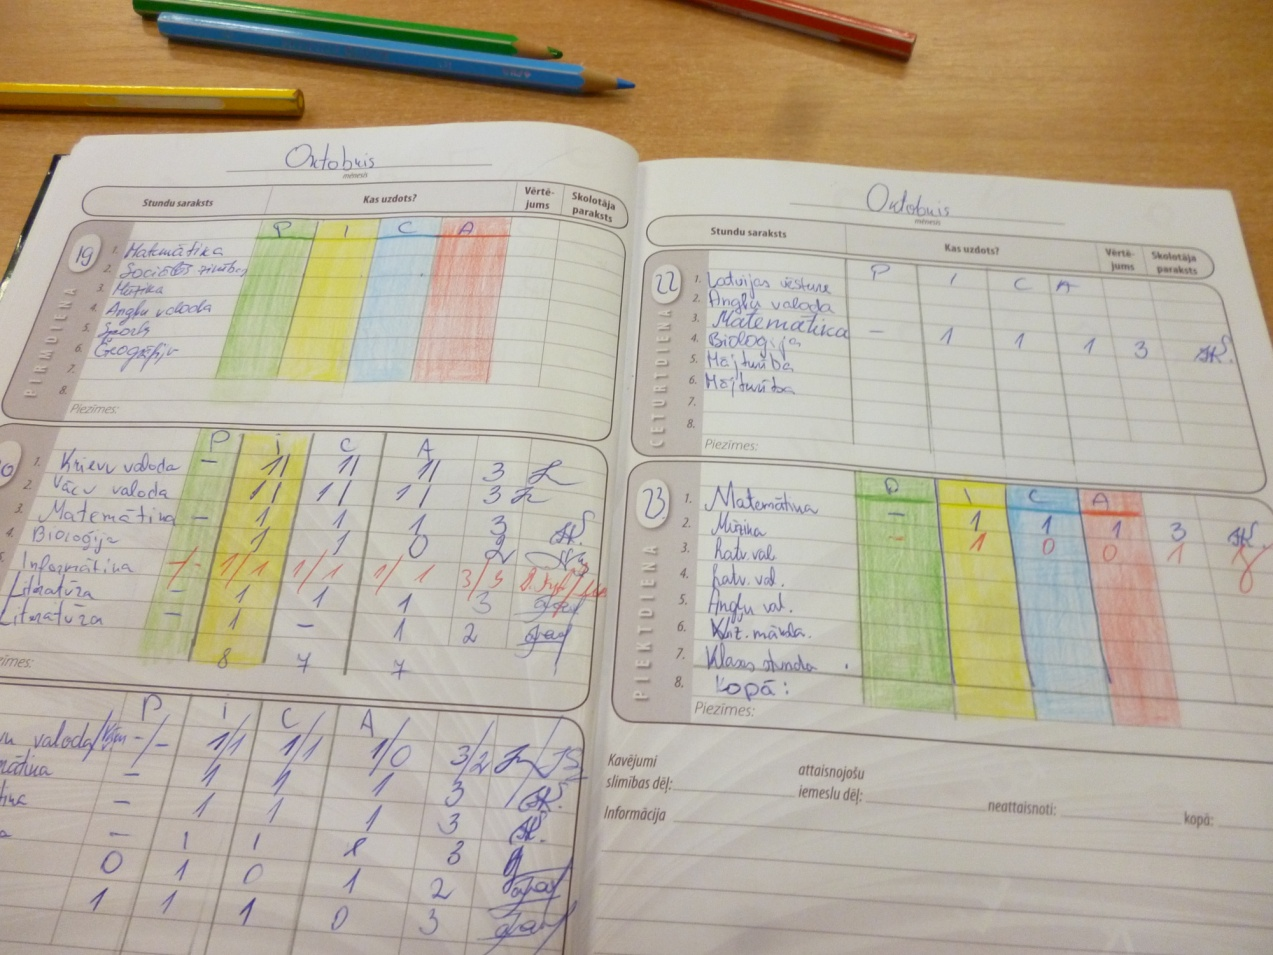 Oktobris
mēnesis
Stundu saraksts Kas uzdots? Vērtē-jums Skolotāja paraksts
P I C A
19
PIRMDIENA
1. Matemātika
2. Sociālās zinības
3. Mūzika
4. Angļu valoda
5. Sports
6. Ģeogrāfija
7.
8.
Piezīmes:
P I C A
1. Krievu valoda - 1/ 1/ 1/ 3
2. Vācu valoda 1/ 1/ 1/ 3
3. Matemātika - 1 1 1 3
4. Bioloģija 1 1 0 2
Informātika -/- 1/1 1/1 1/1 3/3
Literatūra - 1 1 1 3
Literatūra - 1 - 1 2
8 7 7
P I C A
valoda/ -/- 1/1 1/1 1/0 3/2
- 1 1 1 3
- 1 1 1 3
- 1 1 1 3
0 1 0 1 2
1 1 1 0 3
Oktobris
mēnesis
Stundu saraksts Kas uzdots? Vērtē-jums Skolotāja paraksts
P I C A
22
CETURTDIENA
1. Latvijas vēsture
2. Angļu valoda
3. Matemātika - 1 1 1 3
4. Bioloģija
5. Mājturība
6. Mājturība
7.
8.
Piezīmes:
P I C A
23
PIEKTDIENA
1. Matemātika - 1 1 1 3
2. Mūzika - 1 0 0 1
3. Latv. val.
4. Latv. val.
5. Angļu val.
6. Viz. māksla.
7. Klases stunda.
8. Kopā:
Piezīmes:
Kavējumi
slimības dēļ: attaisnojošu iemeslu dēļ: neattaisnoti: kopā:
Informācija